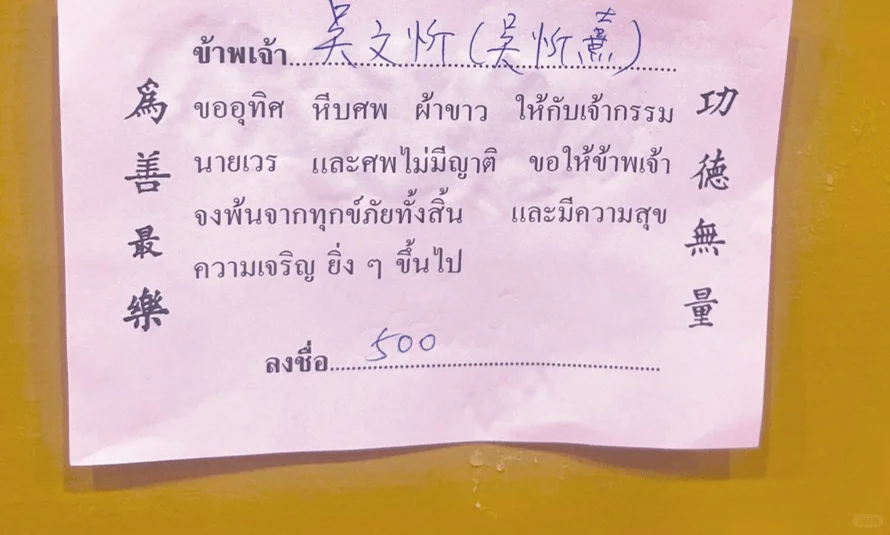 ข้าพเจ้า 吴文忻(吴忻熹)
ขออุทิศ หีบศพ ผ้าขาว ให้กับเจ้ากรรม
นายเวร และศพไม่มีญาติ ขอให้ข้าพเจ้า
จงพ้นจากทุกข์ภัยทั้งสิ้น และมีความสุข
ความเจริญ ยิ่ง ๆ ขึ้นไป
ลงชื่อ 500
為善最樂
功德無量